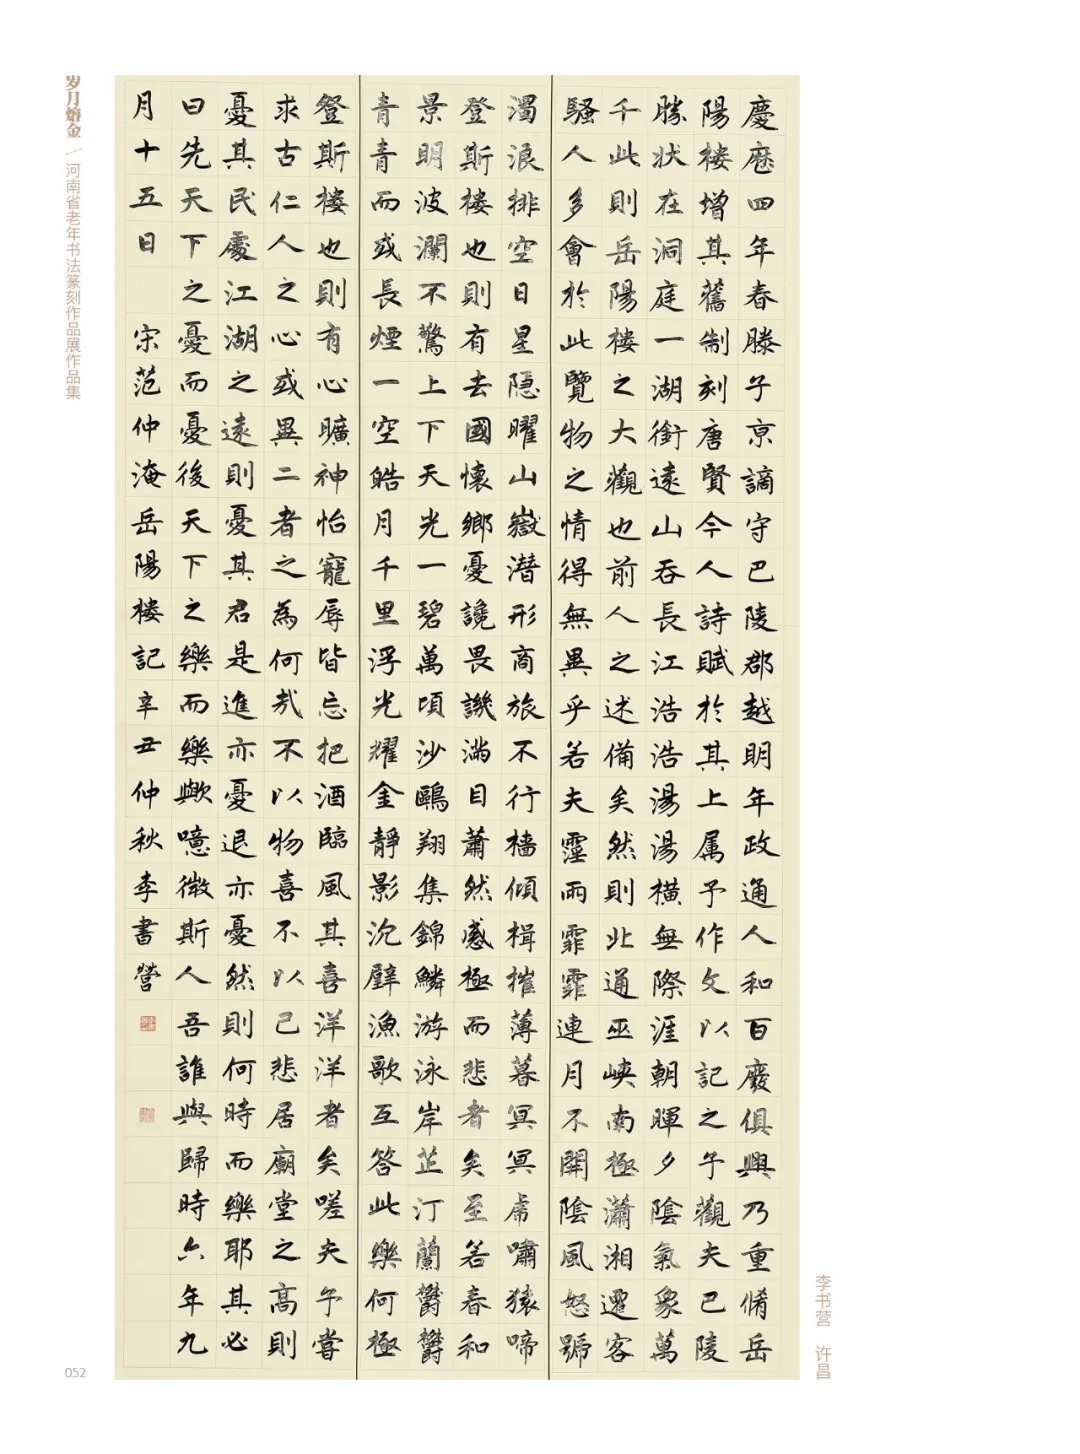 慶厯四年春滕子京謫守巴陵郡越明年政通人和百廢俱興乃重脩岳
陽楼增其舊制刻唐賢今人詩賦於其上属予作文以記之予觀夫巴陵
勝状在洞庭一湖銜遠山吞長江浩浩湯湯横無際涯朝暉夕陰氣象萬
千此則岳陽楼之大觀也前人之述備矣然則北通巫峽南極瀟湘遷客
騷人多會於此覽物之情得無異乎若夫霪雨霏霏連月不開陰風怒號
濁浪排空日星隐曜山嶽潜形商旅不行檣傾楫摧薄暮冥冥虎嘯猿啼
登斯楼也則有去國懷鄉憂讒畏譏滿目蕭然感極而悲者矣至若春和
景明波瀾不驚上下天光一碧萬頃沙鷗翔集錦鱗游泳岸芷汀蘭鬱鬱
青青而或長煙一空皓月千里浮光耀金靜影沉璧漁歌互答此樂何極
登斯楼也則有心曠神怡寵辱皆忘把酒臨風其喜洋洋者矣嗟夫予嘗
求古仁人之心或異二者之為何哉不以物喜不以己悲居廟堂之高則
憂其民處江湖之遠則憂其君是進亦憂退亦憂然則何時而樂耶其必
曰先天下之憂而憂後天下之樂而樂歟噫微斯人吾誰與歸時六年九
月十五日 宋范仲淹岳陽楼記辛丑仲秋李書營
岁月熔金／河南省老年书法篆刻作品展作品集
李书营 许昌
052